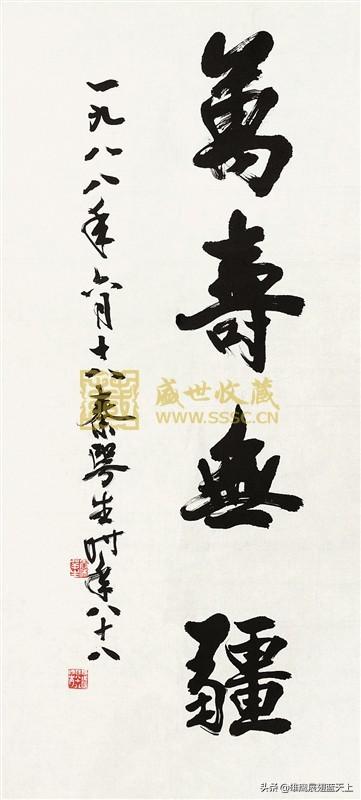 萬壽無疆
一九八八年六月十八秦咢生时年八十八
盛世收藏
WWW.SSSC.CN
头条@雄鹰展翅蓝天上